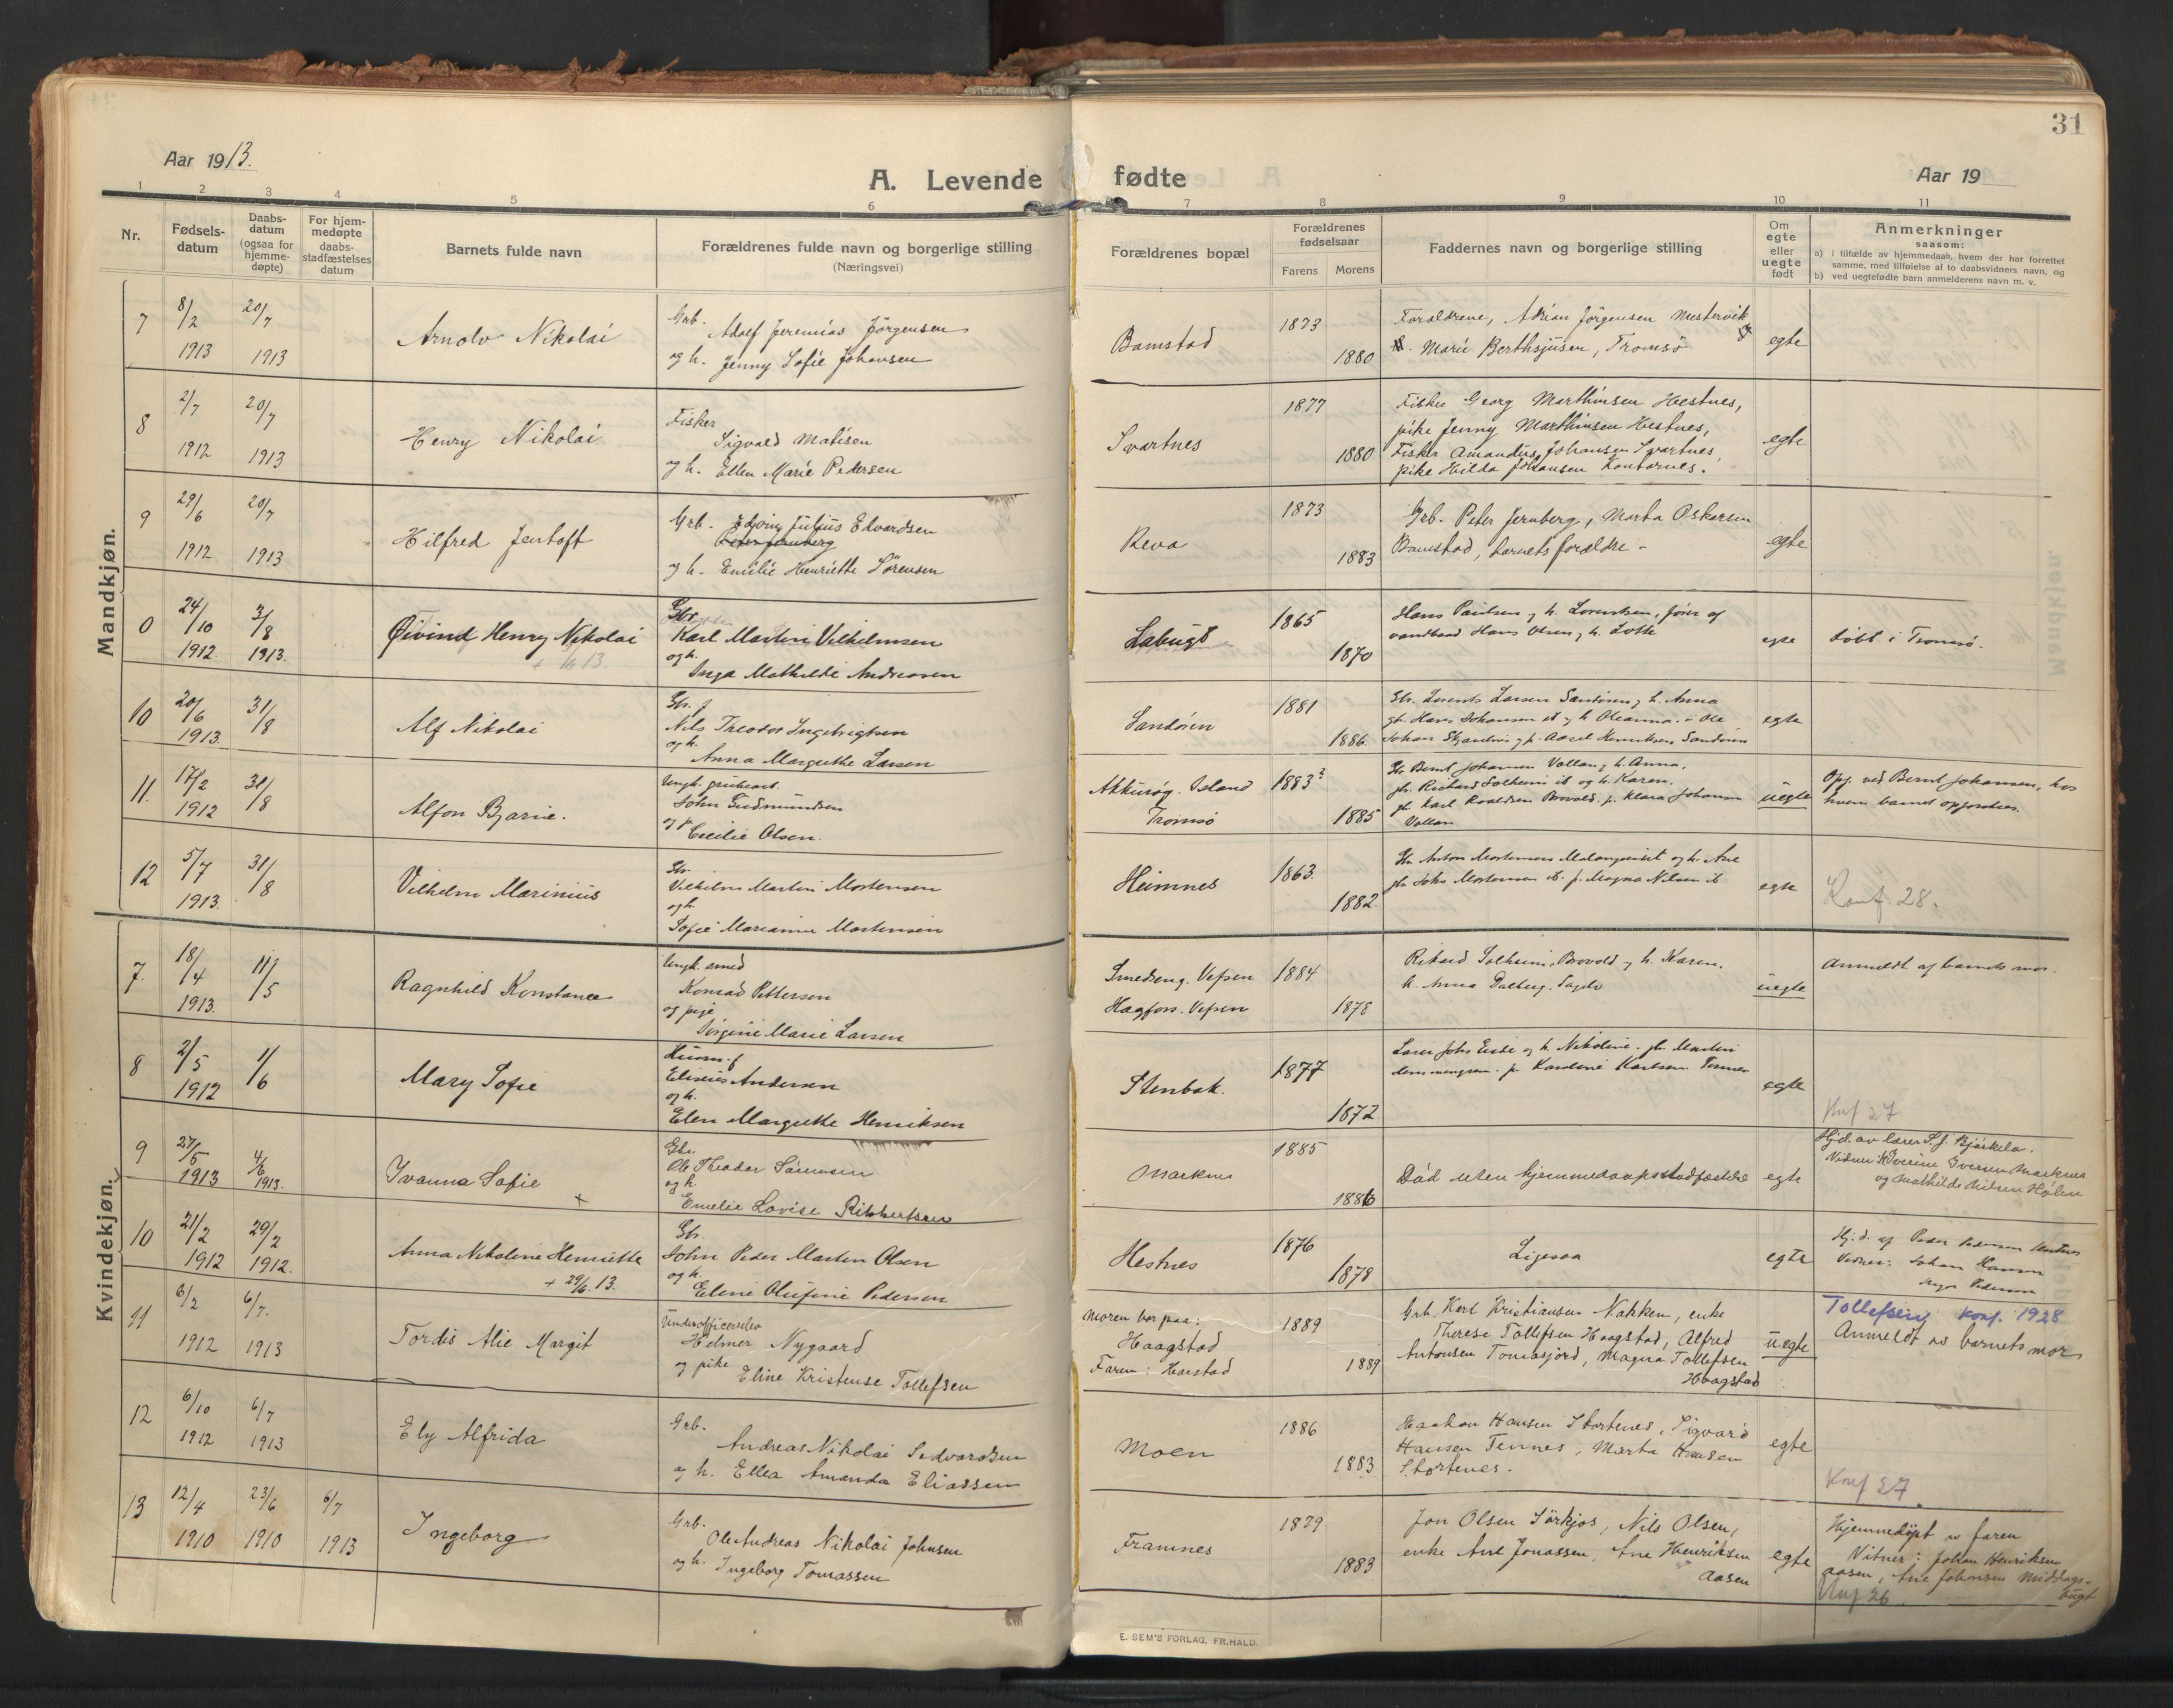 31
Aar 1913.
A. Levende fødte
Aar 19
1 2 3 4 5 6 7 8 9 10 11
Nr.
Fødsels-
datum
Daabs-
datum
(ogsaa for
hjemme-
døpte)
For hjem-
medøpte
daabs-
stadfæstelses
datum
Barnets fulde navn
Forældrenes fulde navn og borgerlige stilling
(Næringsvei)
Forældrenes bopæl
Forældrenes
fødselsaar
Farens Morens
Faddernes navn og borgerlige stilling
Om
egte
eller
uegte
født
Anmerkninger
saasom:
a) i tilfælde av hjemmedaab, hvem der har forrettet
samme, med tilføielse af to daabsvidners navn, og
b) ved uegtefødte barn anmelderens navn m. v.
Mandkjøn.
7 8/2 1913 20/7 1913
Arnolv Nikolai
Grb. Adolf Jeremias Jörgensen
og h. Jenny Sofie Johansen
Bamstad
1873 1880
Foraldrene, Adrian Jörgensen Mestervik
Marie Berthsjüsen, Tromsö
egte
8 2/7 1912 20/7 1913
Henry Nikolai
Fisker
Sigvald Matisen
og h. Ellen Marie Pedersen
Svartnes
1877 1880
Fisker Georg Marthinsen Hestnes,
pike Jenny Marthinsen Hestnes,
Fisker Amandus Johansen Svartnes,
pike Hilda Johansen
egte
9 29/6 1912 20/7 1913
Hilfred Jentoft
Grb. Edvin Julius Edvardsen
Peter Jernberg
og h. Emilie Henriette Sörensen
Reva
1873 1883
Grb. Peter Jernberg, Marta Oskarsen
Bamstad, barnets forældre -
egte
0 24/10 1912. 3/8 1913.
Öivind Henry Nikolai
Gbr
Karl Martin Vilhelmsen
og h.
Inga Mathilde Andreasen
Labugt
1865 1870
Hans Paulsen og h. Lorentsen, fører af
vandbaad Hans Olsen og h. Lotte
egte
döbt i Tromsö.
10 20/6 1913. 31/8
Alf Nikolai
Gbr. f
Nils Theodor Ingebrigtsen
og h.
Anna Margrethe Larsen
Sandören
1881 1886.
Gbr. Lorents Larsen Sandören og h. Anna
egte
11. 17/2 1912 31/8
Alfon Bjarne.
Ungk. grubearb.
John Gudmundsen
og p.
Cecilie Olsen.
Island
Tromsö
1883? 1885
Gbr Bernt Johansen Vollan og h. Anna.
gbr. Richard Solheim ib og h. Karen.
Vollan
uegte
Opg. ved Bernt Johansen, hos
hvem barnet opfostres.
12 5/7 1913. 31/8
Vilhelm Marinius
Gbr.
Vilhelm Martin Mortensen
og h.
Sofie Marianne Mortensen
Heimnes
1863. 1882.
Gbr Anton Mortensen Malangseidet og h. Ane
gbr Johs Mortensen ib. p. Magna Nilsen ib
egte
Konf. 28.
Kvindekjøn.
7. 18/4 1913. 11/5
Ragnhild Konstance
Ungk. smed
Konrad Pettersen
og pige
Jörgine Marie Larsen
Smedseng. Vefsen
Hagfors. Vefsen
1884 1878
Rikard Solheim, Brovold og h. Karen.
h. Anna Dalberg.
uegte
Anmeldt af barnets mor.
8 2/5 1912 1/6
Mary Sofie
Husm. f
Eliseus Andersen
og h.
Elen Margrethe Henriksen
Stenbak.
1877 1872
Lærer Johs Eide og h. Nikoline. gbr Martin
p. Karoline Karlsen Tennes
egte
Knf 27
9 27/5 1913 4/6 1913.
Ivanna Sofie +
Gbr.
Ole Theodor Sörensen
og h.
Emelie Lovise Rikhertsen
Marknes
1885 1886
Död uten hjemmedaapsstadfæstelse
egte
Hjd. av lærer S. J. Bjørkeba.
Vidner: K Iverine Iversen Marknes
og Mathilde Nilsen Hølen
10 21/2 1912 29/2 1912.
Anna Nikoline Henriette
+ 29/6. 13.
Gbr.
John Peder Martin Olsen
og h.
Eline Olufine Pedersen
Hestnes
1876 1878
Ligesaa
egte
Hj.d. af Peder Pedersen Hestnes
Vidner: Johan Hansen
Pedersen
11 6/2 1912 6/7. 1913
Tordis Alie Margit
Underofficerselev
Helmer Nygaard
og pike Eline Kristense Tollefsen
Moren bor paa:
Haagstad
Faren: Harstad
1889 1889
Grb. Karl Kristiansen Nakken, enke
Therese Tollefsen Haagstad, Alfred
Antonsen Tomasjord, Magna Tollefsen
Haagstad
uegte
Tollefsen konf. 1928
Anmeldt av barnets mor
12 6/10 1912 6/7 1913
Ely Alfrida
Grb.
Andreas Nikolai Sedvardsen
og h. Ellea Amanda Eliassen
Moen
1886 1883
Haakon Hansen Stortenes, Sigvard
Hansen Tennes, Marta Hansen
Stortenes.
egte
Knf 27.
13 12/4 1910 23/6 1910 6/7 1913
Ingeborg
Grb.
Ole Andreas Nikolai Johnsen
og h. Ingeborg Tomassen
Framnes
1879 1883
Jon Olsen Sörkjos, Nils Olsen,
enke Ane Jonassen, Ane Henriksen
Aasen
egte
Hjemmedöpt av faren
Vitner: Johan Henriksen
Aasen, Ane Johansen Middags-
bugt
Knf 26
E. SEM'S FORLAG, FR.HALD.